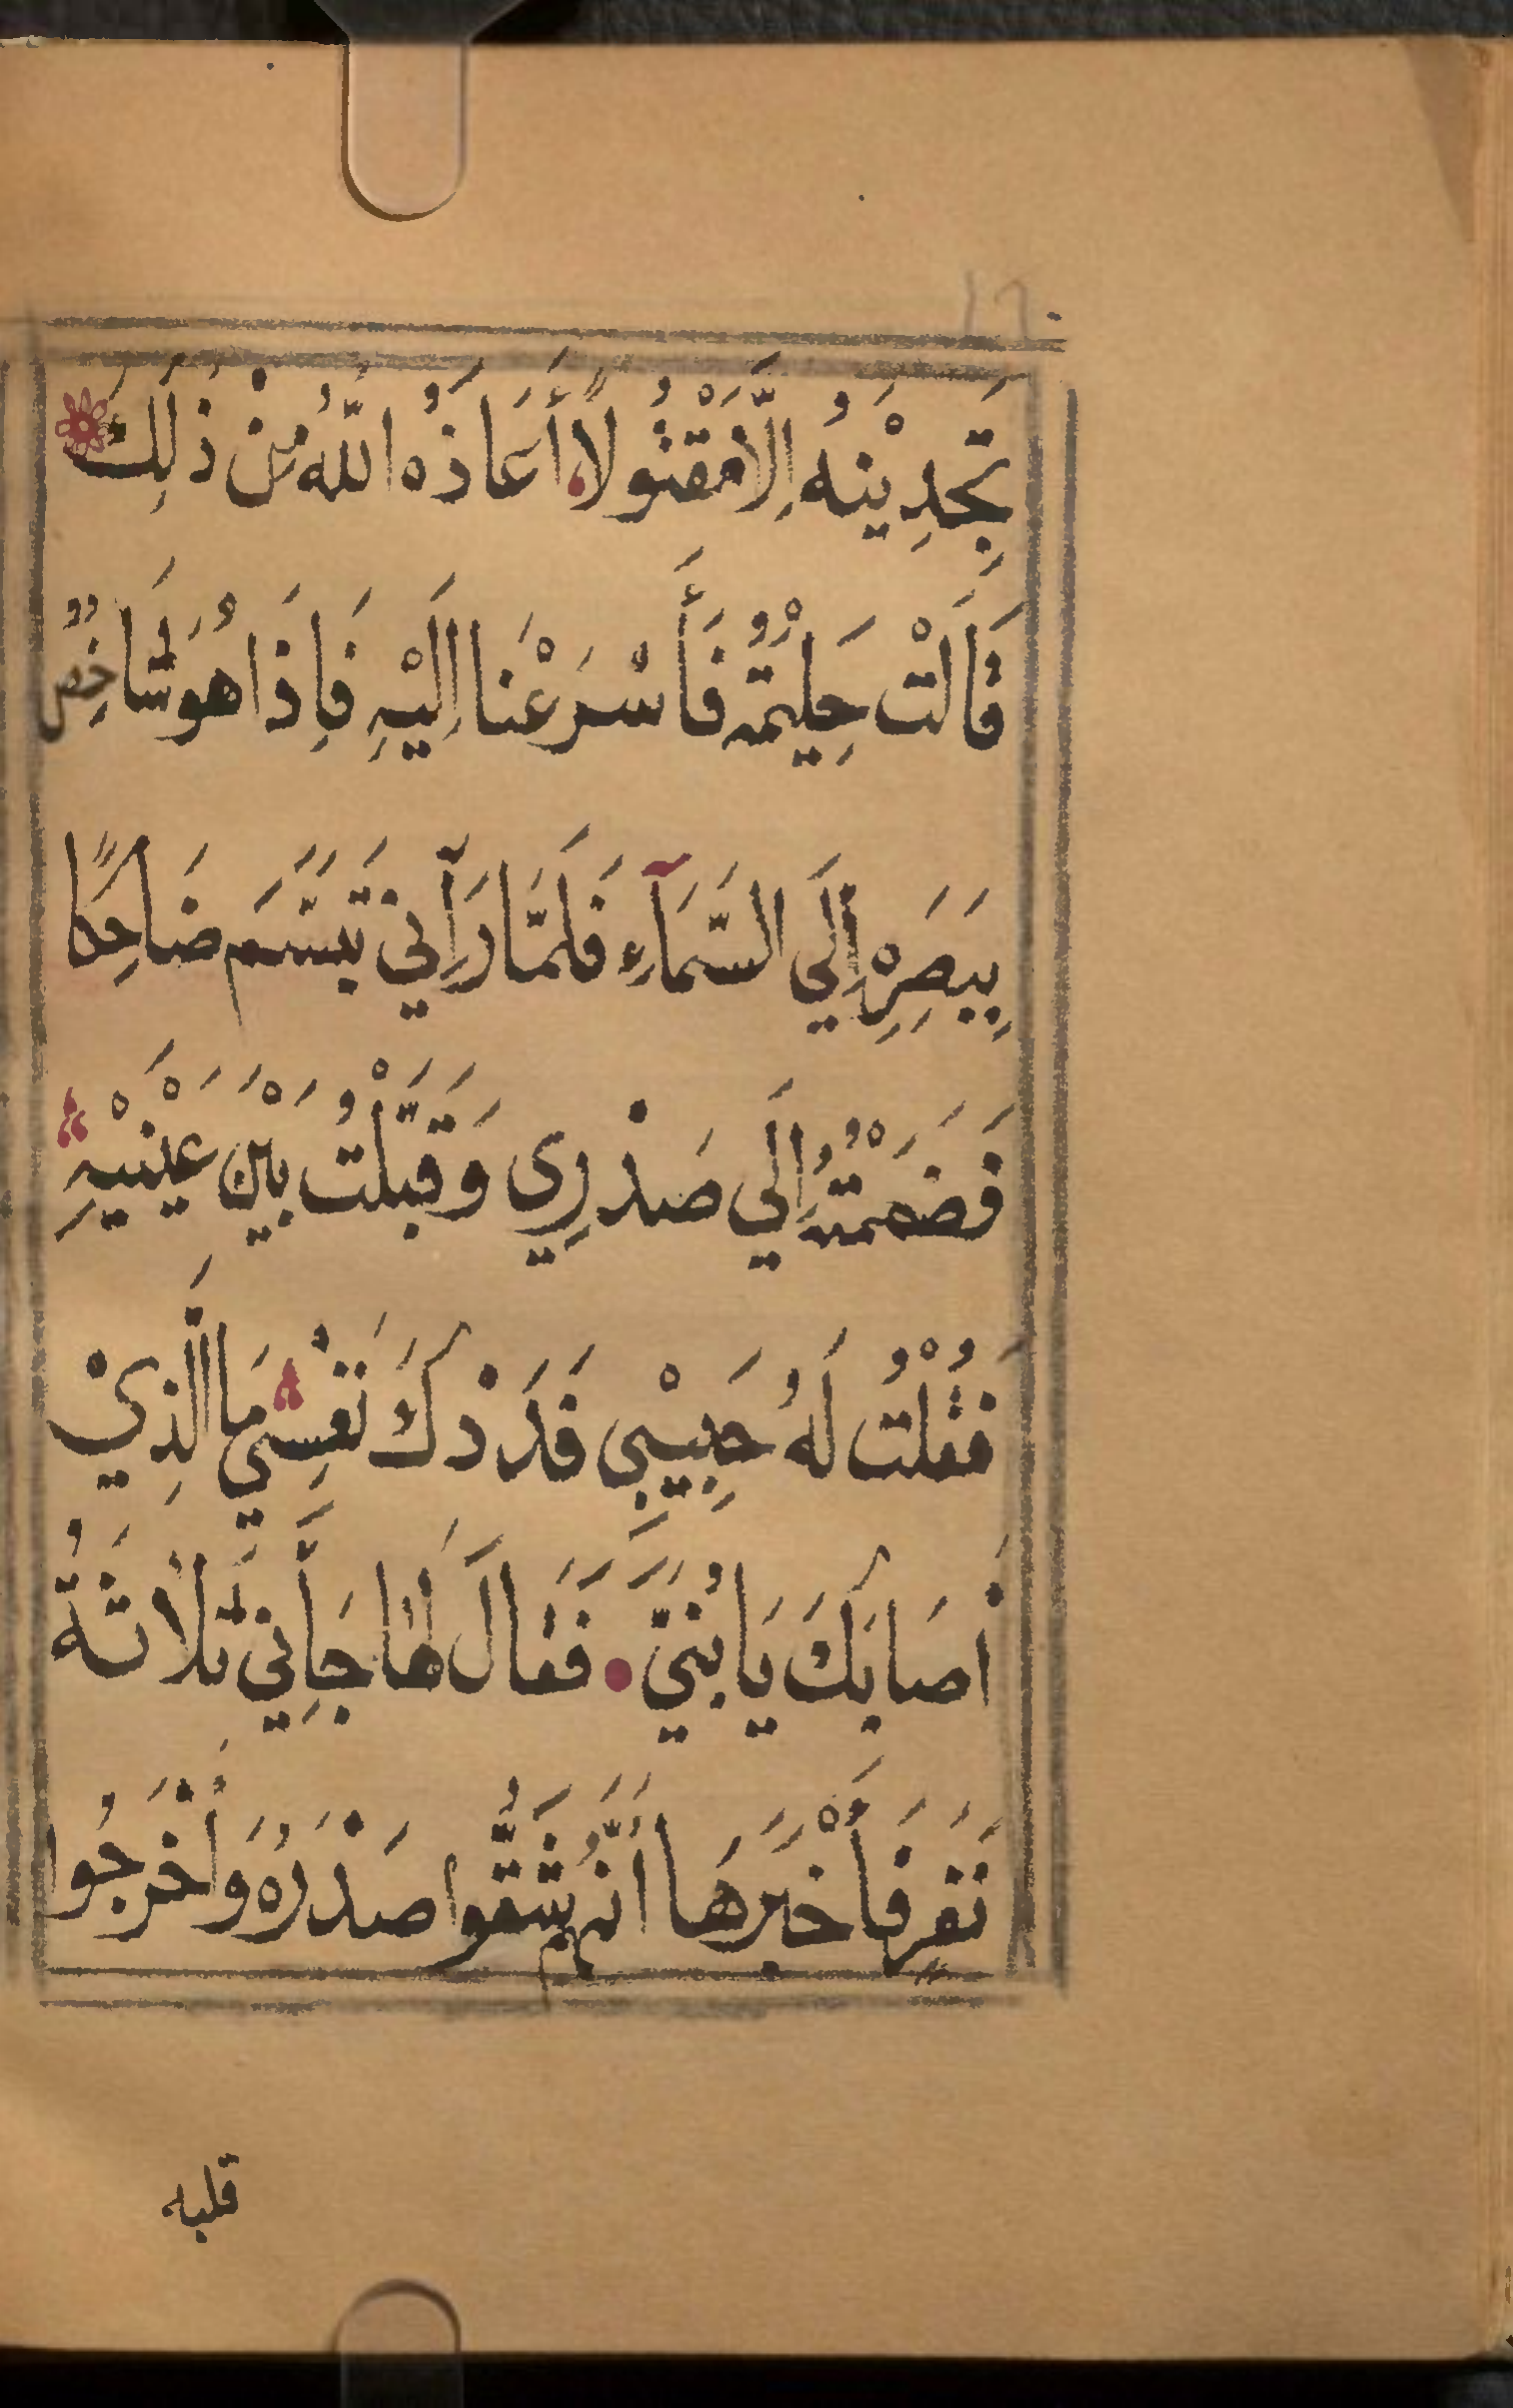 تَجِدِيْنَهُ إِلَّا مَقْتُولًا أَعَاذَهُ اللّٰهُ مِنْ ذٰلِكَ
قَالَتْ حَلِيْمَةُ فَأَسْرَعْنَا إِلَيْهِ فَإِذَا هُوَ شَاخِصٌ
بِبَصَرِهِ إِلَي السَّمَآءِ فَلَمَّا رَآَنِي تَبَسَّمَ ضَاحِكًا
فَضَمَمْتُهُ إِلَي صَدْرِي وَقَبَّلْتُ بَيْنَ عَيْنَيْهِ
فَقُلْتُ لَهُ حَبِيْبِي فَدَذْكَ نَفْسِي مَا الَّذِيْ
أَصَابَكَ يَا بُنَيَّ فَقَالَ لَهَا جَاَنِي ثَلَاثَةُ
نَفَرٍ فَأَخْبَرَهَا أَنَّهُمْ شَقُّوا صَدْرَهُ وَأَخْرَجُوا
قلبه